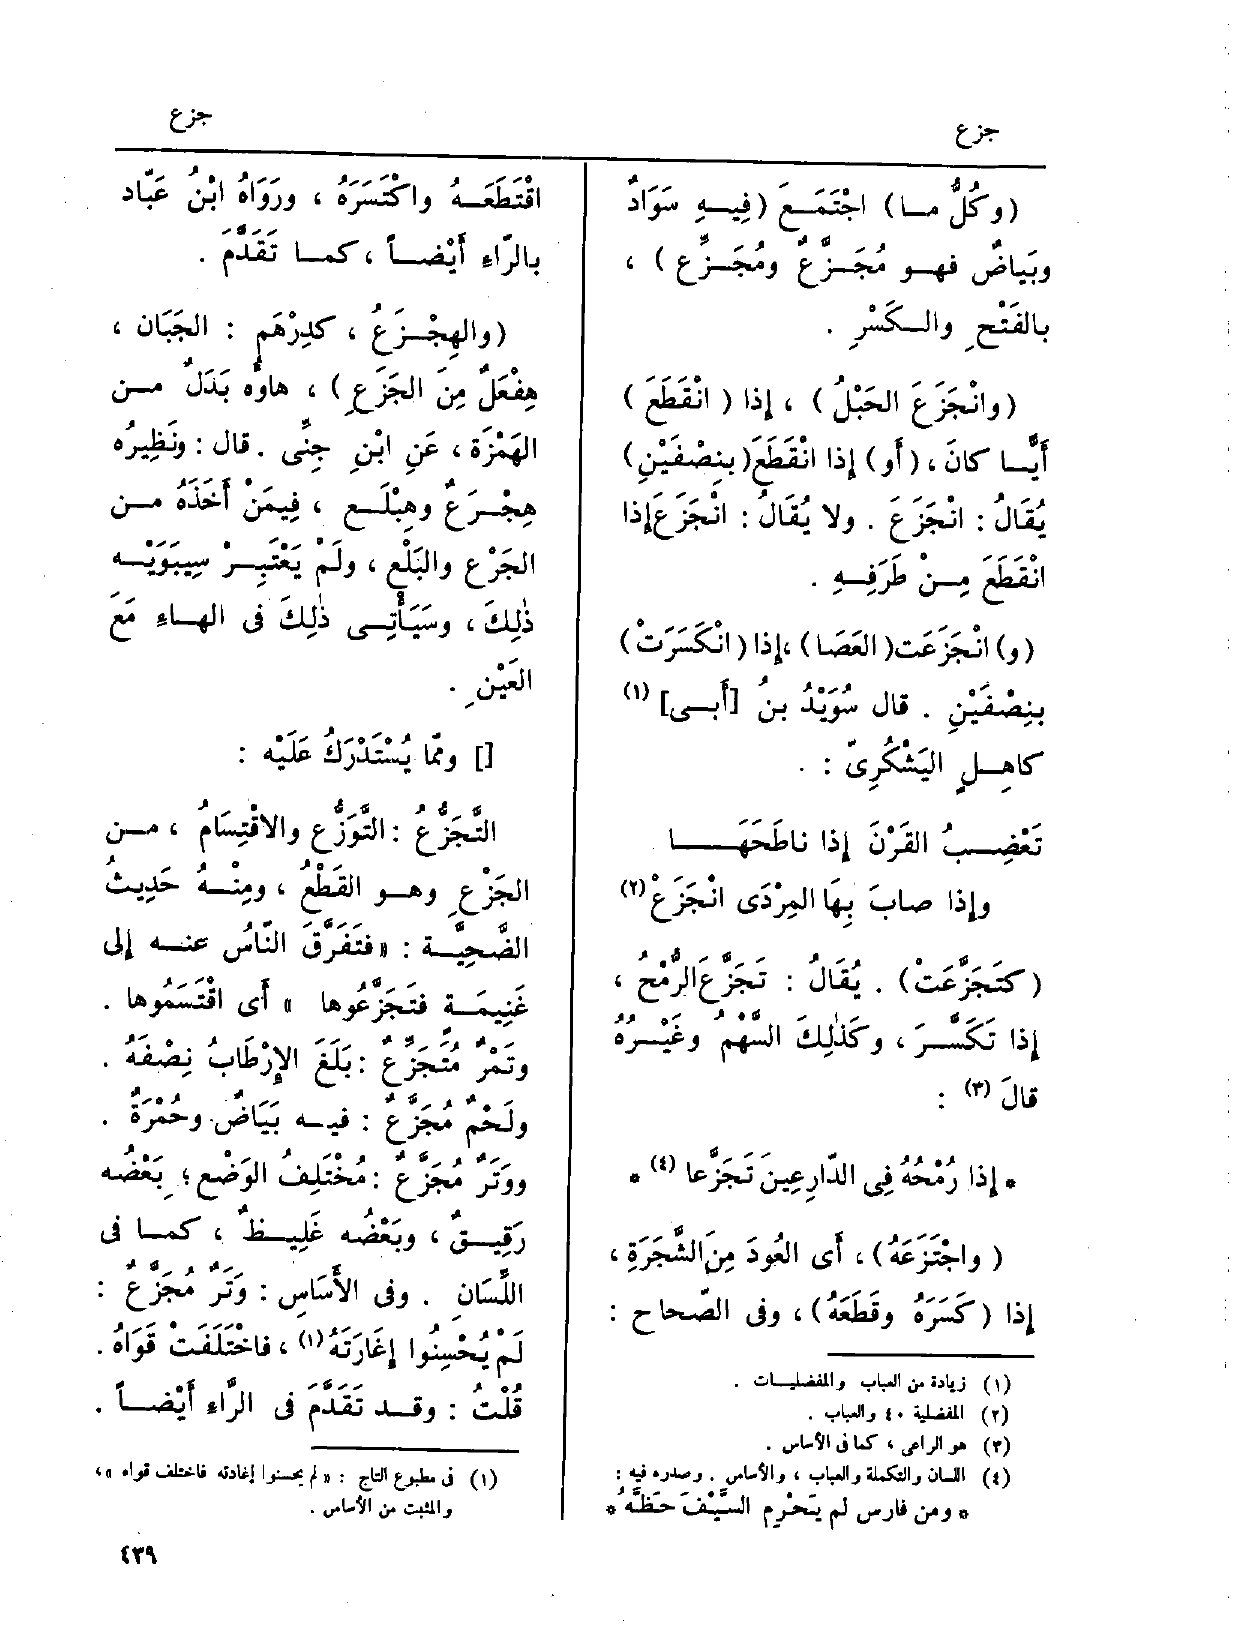 جزع
جزع
(وكُلُّ مـا) اجْتَمَـعَ (فِيـهِ سَوَادٌ
وبَياضٌ فهـو مُجَـزَّعٌ ومُجَـزِّع) ،
بالفَتْحِ والـكَسْرِ .
(وانْجَزَعَ الحَبْلُ) ، إذا (انْقَطَعَ)
أَيًّـا كانَ ، (أو) إذا انْقَطَع (بنِصْفَيْنِ)
يُقَالُ : انْجَزَعَ . ولا يُقَالُ : انْجَزَع إذا
انْقَطَعَ مِـنْ طَرَفِـهِ .
(و) انْجَزَعَت (العَصَا) ، إذا (انْكَسَرَتْ)
بنِصْفَيْنِ . قال سُوَيْدُ بنُ [أَبـى] (١)
كاهِـلٍ اليَشْكُرِىّ : .
تَعْضِـبُ القَرْنَ إذا ناطَحَهَـــا
وإذا صابَ بِهَا المِرْدَى انْجَزَعْ (٢)
(كتَجَزَّعَتْ) . يُقَالُ : تَجَزَّعَ الرُّمْحُ ،
إذا تَكَسَّـرَ ، وكَذٰلِكَ السَّهْمُ وغَيْـرُهُ
قالَ (٣) :
* إذا رُمْحُهُ فِى الدّارِعِينَ تَجَزَّعا (٤) *
(واجْتَزَعَهُ) ، أى العُودَ مِنَ الشَّجَرَةِ ،
إذا (كَسَرَهُ وقَطَعَهُ) ، وفى الصّحاح :
(١) زيادة من العباب والمفضليـات .
(٢) المفضلية ٤٠ والعباب .
(٣) هو الراعى ، كما فى الأساس .
(٤) اللسان والتكملة والعباب ، والأساس . وصدره فيه :
* ومن فارس لم يَحْرِمِ السَّيْفَ حَظَّهُ *
اقْتَطَعَـهُ واكْتَسَرَهُ ، ورَوَاهُ ابْنُ عَبّاد
بالرّاءِ أَيْضـاً ، كمـا تَقَدَّمَ .
(والهِجْـزَعُ ، كدِرْهَمٍ : الجَبَان ،
هِفْعَلٌ مِنَ الجَزَعِ) ، هاؤُه بَدَلٌ مـن
الهَمْزَة ، عَنِ ابْنِ جِنِّى . قال : ونَظِيرُه
هِجْـرَعٌ وهِبْلَـع ، فِيمَنْ أَخَذَهُ مـن
الجَرْعِ والبَلْعِ ، ولَمْ يَعْتَبِـرْ سِيبَوَيْـه
ذٰلِكَ ، وسَيَأْتِـى ذٰلِكَ فى الهـاءِ مَعَ
العَيْنِ .
[] وممّا يُسْتَدْرَكُ عَلَيْه :
التَّجَزُّعُ : التَّوَزُّع والاقْتِسَامُ ، مـن
الجَزْعِ وهـو القَطْعُ ، ومِنْـهُ حَدِيثُ
الضَّحِيَّـة : « فتَفَرَّقَ النّاسُ عنـه إلى
غَنِيمَـة فتَجَزَّعُوها » أَى اقْتَسَمُوها .
وتَمْرٌ مُتَجَزِّعٌ : بَلَغَ الإرْطَابُ نِصْفَهُ .
ولَحْمٌ مُجَزَّعٌ : فيـه بَيَاضٌ وحُمْرَةٌ .
ووَتَرٌ مُجَزَّعٌ : مُخْتَلِفُ الوَضْعِ ؛ بَعْضُه
رَقِيـقٌ ، وبَعْضُه غَلِيـظٌ ، كمـا فى
اللِّسَانِ . وفى الأَسَاسِ : وَتَرٌ مُجَزَّعٌ :
لَمْ يُحْسِنُوا إغَارَتَهُ (١) ، فاخْتَلَفَتْ قُوَاهُ .
قُلْتُ : وقـد تَقَدَّمَ فى الرَّاءِ أَيْضـاً .
(١) فى مطبوع التاج : « لم يحسنوا إغادته فاختلف قواه » ،
والمثبت من الأساس .
٤٣٩